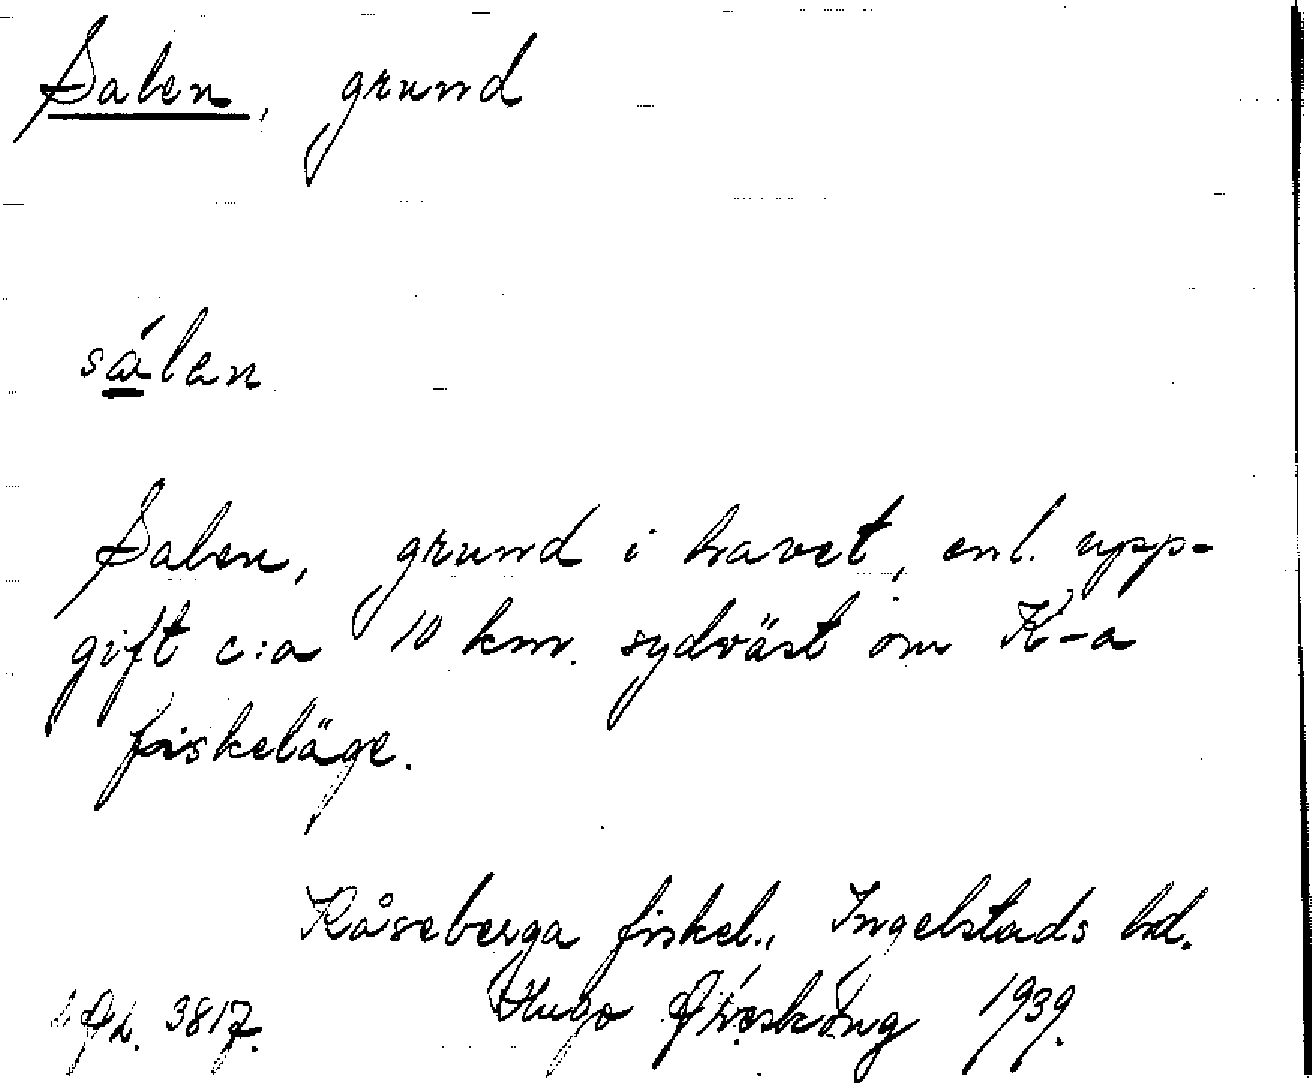 Salen, grund
sálan
Salen, grund i havet, enl. upp-
gift c:a 10 km. sydväst om K-a
fiskeläge.
Kåseberga fiskel., Ingelstads hd.
3817. Hugo 1939.